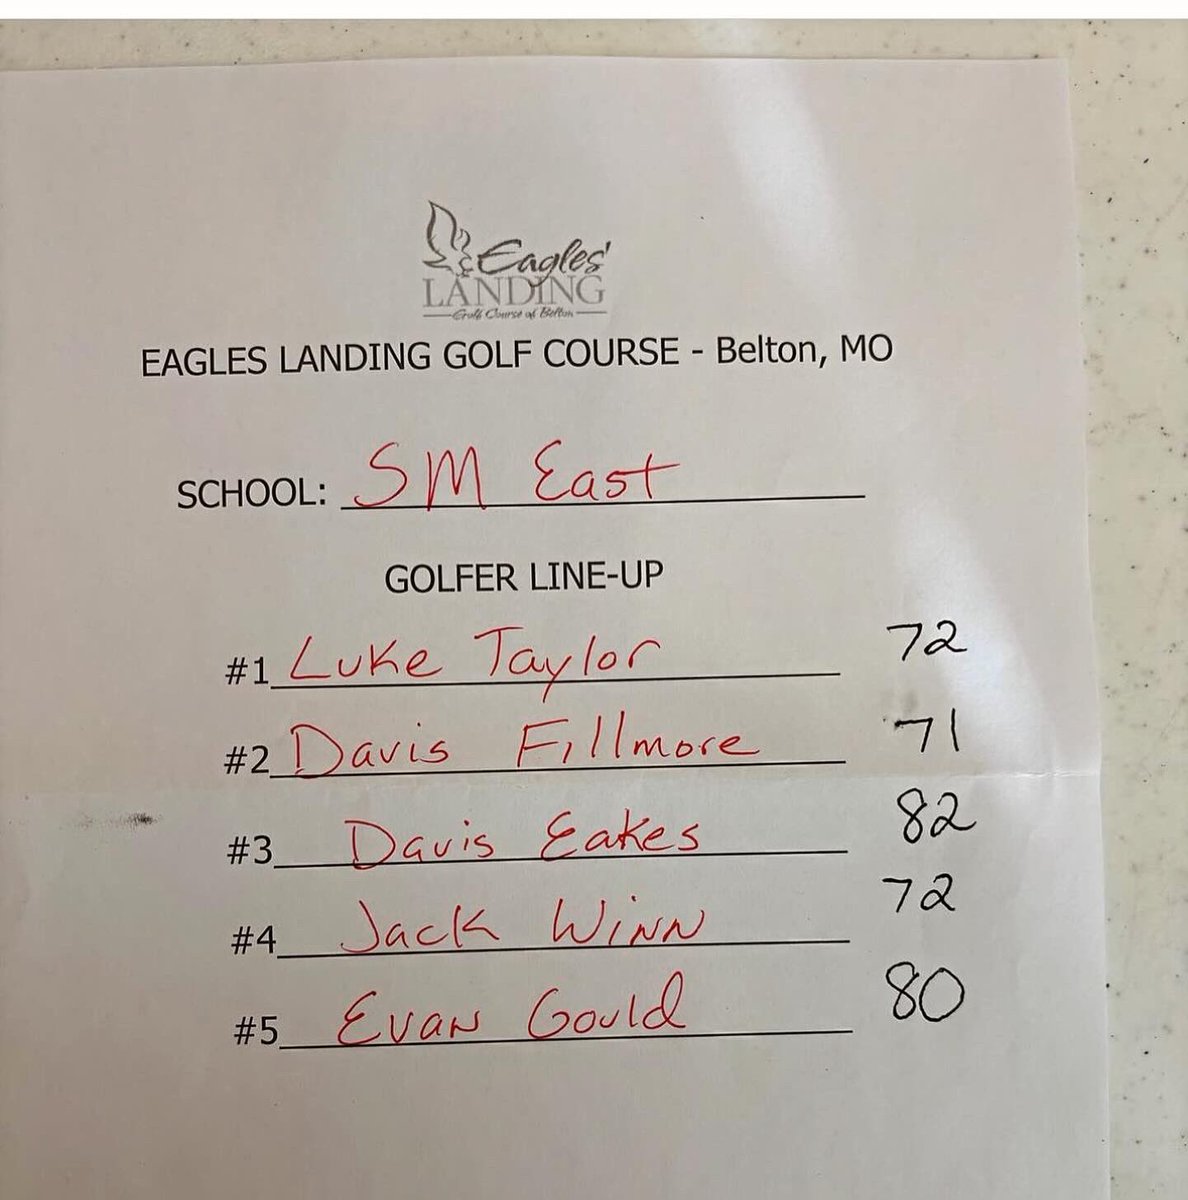 Eagles'
LANDING
Golf Course of Belton
EAGLES LANDING GOLF COURSE - Belton, MO
SCHOOL: SM East
GOLFER LINE-UP
#1 Luke Taylor 72
#2 Davis Fillmore 71
#3 Davis Eakes 82
#4 Jack Winn 72
#5 Evan Gould 80